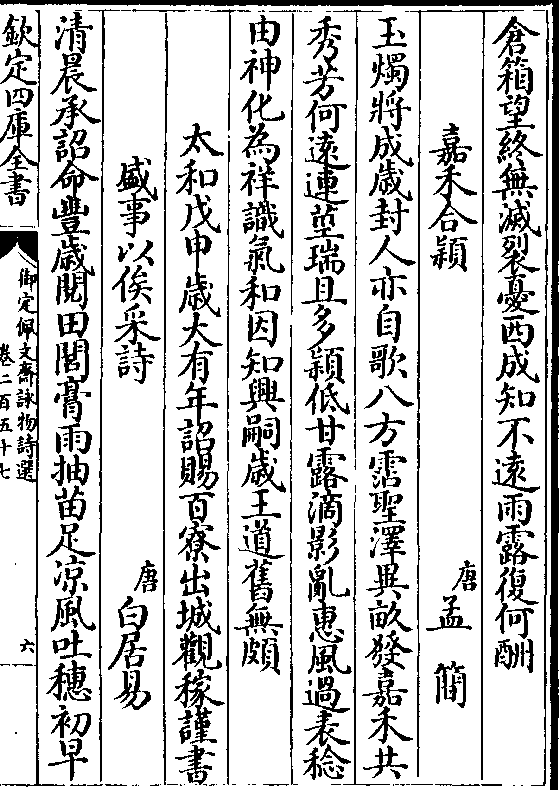 倉箱望終無滅裂憂西成知不遠雨露復何酬
嘉禾合穎
唐孟簡
玉燭將成歲封人亦自歌八方霑聖澤異畝發嘉禾共
秀芳何遠連莖瑞且多穎低甘露滴影亂惠風過表稔
由神化為祥識氣和因知興嗣歲王道舊無頗
太和戊申歲大有年詔賜百寮出城觀稼謹書
盛事以俟采詩
唐白居易
清晨承詔命豐歲閱田閭膏雨抽苗足涼風吐穗初早
欽定四庫全書
御定佩文齋詠物詩選
卷二百五十七
六